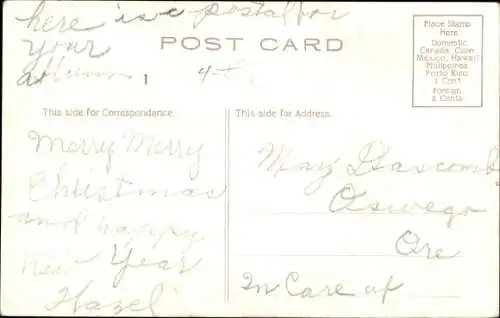 here is a postal for
your
album
POST CARD
Place Stamp
Here
Domestic
Canada Cuba
Mexico, Hawaii
Philippines
Porto Rico
1 Cent
Foreign
2 Cents
This side for Correspondence.
Merry Merry
Christmas
and happy
new Year
Hazel
This side for Address.
May Gascomb
Oswego
Ore
In Care of